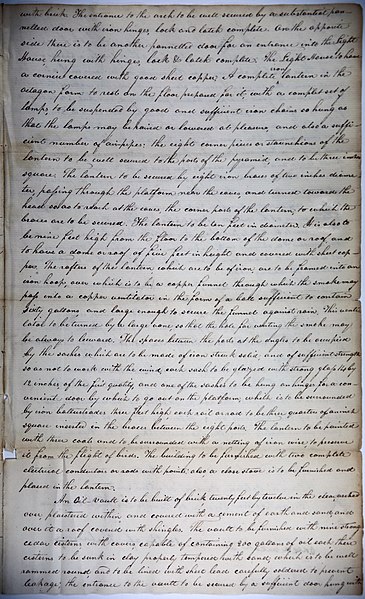 with brick. The entrance to the arch to be well secured by a substantial pan-
nelled door, with iron hinges, lock and latch complete. On the opposite
side there is to be another pannelled door for an entrance into the Light
House, hung with hinges, lock & latch complete. The Light House to have
a cornice covered with good sheet copper; A complete iron lantern in the
octagon form to rest on the floor prepared for it, with a complete set of
lamps to be suspended by good and sufficient iron chains so hung as
that the lamps may be raised or lowered at pleasure, and also a suffi-
cient number of air pipes: the eight corner pieces or stauncheons of the
lantern to be well secured to the posts of the pyramid, and to be three inches
square. The lantern to be secured by eight iron braces of two inches diame-
ter, passing through the platform near the eaves and turned towards the
head so as to attach at the eaves, the corner posts of the lantern to which the
braces are to be secured. The lantern to be ten feet in diameter, It is also to
be nine feet high from the floor to the bottom of the dome or roof, and
to have a dome or roof of five feet in height and covered with sheet cop-
per. The rafters of the lantern which are to be of iron are to be framed into an
iron hoop, over which is to be a copper funnel through which the smoke may
pass into a copper ventilator in the form of a cask sufficient to contain
Sixty gallons and large enough to secure the funnel against rain. This venti-
lator to be turned by a large vane so that the hole for venting the smoke may
be always to leeward. The spaces between the posts at the angles to be occupied
by the sashes which are to be made of iron struck solid and of sufficient strength
so as not to work with the wind, each sash to be glazed with strong glass 14 by
12 inches of the first quality, and one of the sashes to be hung on hinges for a con-
venient door by which to go out on the platform, which is to be surrounded
by iron battenheader three feet high each rail or rod to be three quarters of an inch
square inserted in the braces between the eight posts. The lantern to be painted
with three coats and to be surrounded with a netting of iron wire to preserve
it from the flight of birds. The building to be furnished with two complete
electrical conductors or rods with points, also a close stove is to be furnished and
placed in the lantern.
An Oil Vault is to be built of brick twenty feet by twelve in the clear, arched
over plaistered within and covered with a cement of earth and sand, and
over it a roof covered with shingles. The vault to be furnished with nine strong
cedar cisterns with covers capable of containing 200 gallons of oil each. These
cisterns to be sunk in clay properly tempered with sand, which is to be well
rammed round and to be lined with sheet lead carefully soldered to prevent
leakage, the entrance to the vault to be secured by a sufficient door hung with